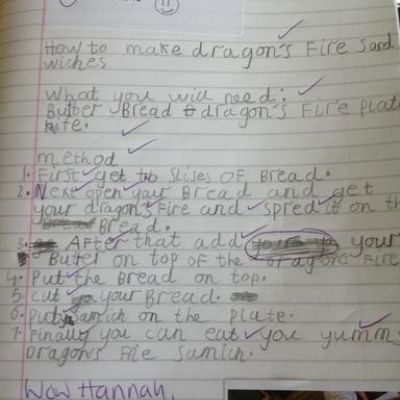 How to make dragon's Fire Sand
wiches
What you will need:
Butter Bread dragon's Fire Plate
method
1. First get two Slises OF Bread.
2. Next open your Bread and get
your dragon's Fire and spred it on th
Bread.
3. AFter that add your
Butter on top OF the dragons Fire
4. Put the Bread on top.
5 cut your Bread.
6. Put Samich on the plate.
7. Finally you can eat you yumm
Dragon's File Samich.
Wow Hannah,